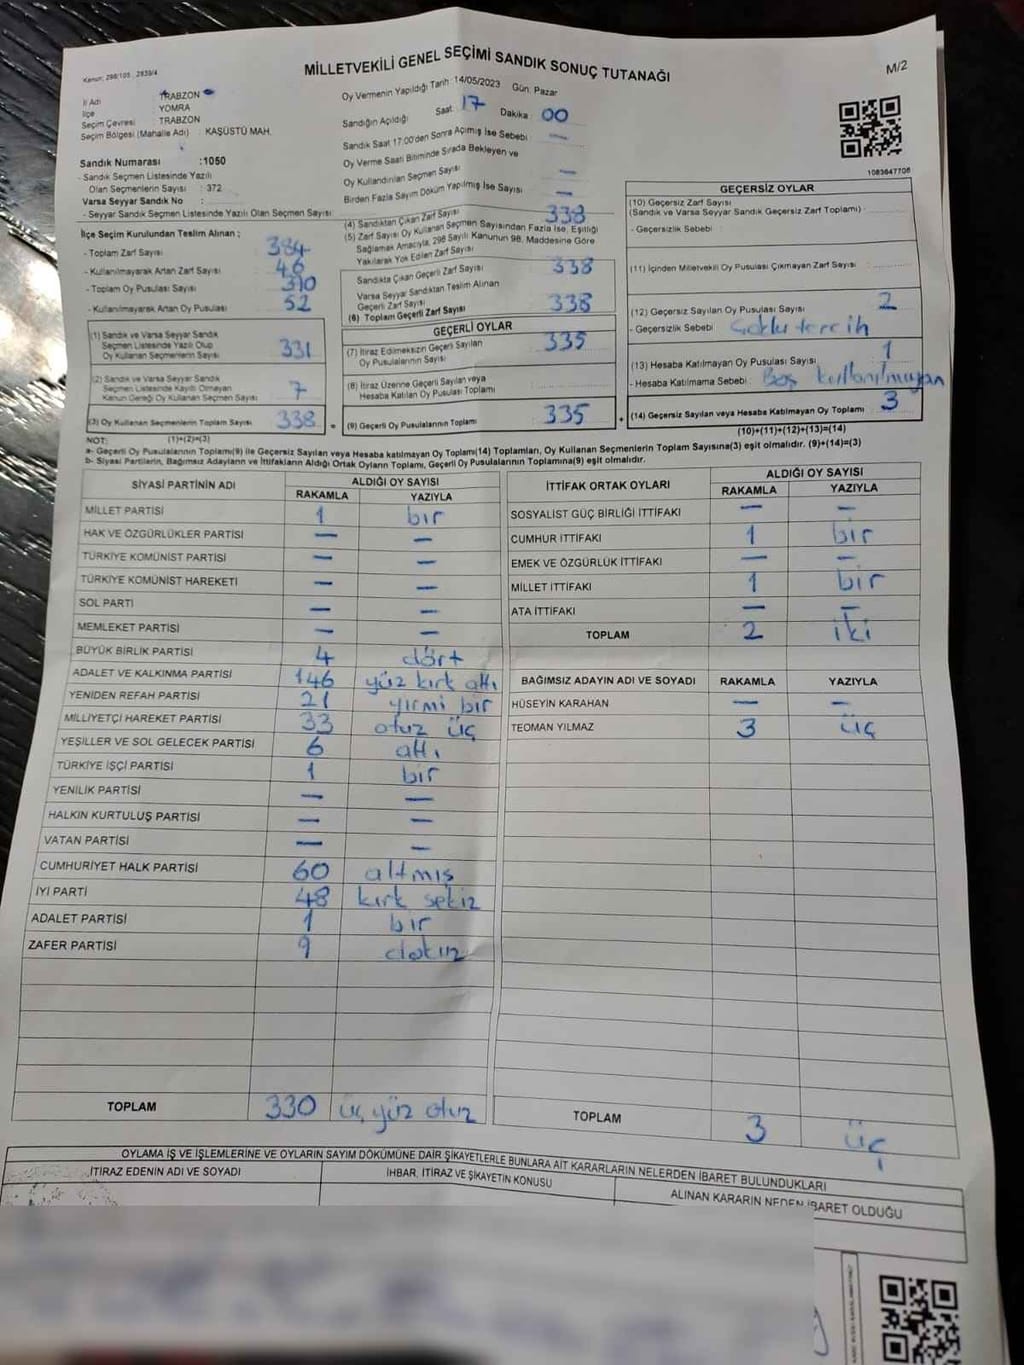 Kanun: 298/105, 2839/4
MİLLETVEKİLİ GENEL SEÇİMİ SANDIK SONUÇ TUTANAĞI
M/2
İl Adı TRABZON
İlçe YOMRA
Seçim Çevresi TRABZON
Seçim Bölgesi (Mahalle Adı) : KAŞÜSTÜ MAH.
Sandık Numarası :1050
- Sandık Seçmen Listesinde Yazılı
Olan Seçmenlerin Sayısı : 372
Varsa Seyyar Sandık No :
- Seyyar Sandık Seçmen Listesinde Yazılı Olan Seçmen Sayısı
Oy Vermenin Yapıldığı Tarih :14/05/2023 Gün: Pazar
Sandığın Açıldığı Saat: 17 Dakika : 00
Sandık Saat 17:00'den Sonra Açılmış İse Sebebi : —
Oy Verme Saati Bitiminde Sırada Bekleyen ve
Oy Kullandırılan Seçmen Sayısı —
Birden Fazla Sayım Döküm Yapılmış İse Sayısı —
1083647706
İlçe Seçim Kurulundan Teslim Alınan ;
- Toplam Zarf Sayısı 384
- Kullanılmayarak Artan Zarf Sayısı 46
- Toplam Oy Pusulası Sayısı
- Kullanılmayarak Artan Oy Pusulası 52
(1) Sandık ve Varsa Seyyar Sandık
Seçmen Listesinde Yazılı Olup
Oy Kullanan Seçmenlerin Sayısı 331
(2) Sandık ve Varsa Seyyar Sandık
Seçmen Listesinde Kayıtlı Olmayan
Kanun Gereği Oy Kullanan Seçmen Sayısı 7
(3) Oy Kullanan Seçmenlerin Toplam Sayısı 338
(1)+(2)=(3)
(4) Sandıktan Çıkan Zarf Sayısı 338
(5) Zarf Sayısı Oy Kullanan Seçmen Sayısından Fazla İse, Eşitliği
Sağlamak Amacıyla, 298 Sayılı Kanunun 98. Maddesine Göre
Yakılarak Yok Edilen Zarf Sayısı
Sandıkta Çıkan Geçerli Zarf Sayısı 338
Varsa Seyyar Sandıktan Teslim Alınan
Geçerli Zarf Sayısı
(6) Toplam Geçerli Zarf Sayısı 338
GEÇERLİ OYLAR
(7) İtiraz Edilmeksizin Geçerli Sayılan
Oy Pusulalarının Sayısı 335
(8) İtiraz Üzerine Geçerli Sayılan veya
Hesaba Katılan Oy Pusulası Toplamı
(9) Geçerli Oy Pusulalarının Toplamı 335
GEÇERSİZ OYLAR
(10) Geçersiz Zarf Sayısı
(Sandık ve Varsa Seyyar Sandık Geçersiz Zarf Toplamı)
- Geçersizlik Sebebi
(11) İçinden Milletvekili Oy Pusulası Çıkmayan Zarf Sayısı
(12) Geçersiz Sayılan Oy Pusulası Sayısı 2
- Geçersizlik Sebebi : Çoklu tercih
(13) Hesaba Katılmayan Oy Pusulası Sayısı 1
- Hesaba Katılmama Sebebi : Boş kullanılmayan
(14) Geçersiz Sayılan veya Hesaba Katılmayan Oy Toplamı 3
(10)+(11)+(12)+(13)=(14)
NOT:
a- Geçerli Oy Pusulalarının Toplamı(9) ile Geçersiz Sayılan veya Hesaba katılmayan Oy Toplamı(14) Toplamları, Oy Kullanan Seçmenlerin Toplam Sayısına(3) eşit olmalıdır. (9)+(14)=(3)
b- Siyasi Partilerin, Bağımsız Adayların ve İttifakların Aldığı Ortak Oyların Toplamı, Geçerli Oy Pusulalarının Toplamına(9) eşit olmalıdır.
SİYASİ PARTİNİN ADI ALDIĞI OY SAYISI
RAKAMLA YAZIYLA
MİLLET PARTİSİ 1 bir
HAK VE ÖZGÜRLÜKLER PARTİSİ — —
TÜRKİYE KOMÜNİST PARTİSİ — —
TÜRKİYE KOMÜNİST HAREKETİ — —
SOL PARTİ — —
MEMLEKET PARTİSİ — —
BÜYÜK BİRLİK PARTİSİ 4 dört
ADALET VE KALKINMA PARTİSİ 146 yüz kırk altı
YENİDEN REFAH PARTİSİ 21 yirmi bir
MİLLİYETÇİ HAREKET PARTİSİ 33 otuz üç
YEŞİLLER VE SOL GELECEK PARTİSİ 6 altı
TÜRKİYE İŞÇİ PARTİSİ 1 bir
YENİLİK PARTİSİ — —
HALKIN KURTULUŞ PARTİSİ — —
VATAN PARTİSİ — —
CUMHURİYET HALK PARTİSİ 60 altmış
İYİ PARTİ 48 kırk sekiz
ADALET PARTİSİ 1 bir
ZAFER PARTİSİ 9 dokuz
TOPLAM 330 üç yüz otuz
İTTİFAK ORTAK OYLARI ALDIĞI OY SAYISI
RAKAMLA YAZIYLA
SOSYALİST GÜÇ BİRLİĞİ İTTİFAKI — —
CUMHUR İTTİFAKI 1 bir
EMEK VE ÖZGÜRLÜK İTTİFAKI — —
MİLLET İTTİFAKI 1 bir
ATA İTTİFAKI — —
TOPLAM 2 iki
BAĞIMSIZ ADAYIN ADI VE SOYADI RAKAMLA YAZIYLA
HÜSEYİN KARAHAN — —
TEOMAN YILMAZ 3 üç
TOPLAM 3 üç
OYLAMA İŞ VE İŞLEMLERİNE VE OYLARIN SAYIM DÖKÜMÜNE DAİR ŞİKAYETLERLE BUNLARA AİT KARARLARIN NELERDEN İBARET BULUNDUKLARI
İTİRAZ EDENİN ADI VE SOYADI İHBAR, İTİRAZ VE ŞİKAYETİN KONUSU ALINAN KARARIN NEDEN İBARET OLDUĞU